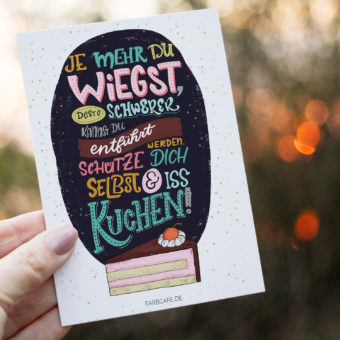 JE MEHR DU
WIEGST,
DESTO SCHWERER
KANNST DU
entführt
WERDEN.
SCHÜTZE DICH
SELBST & ISS
KUCHEN!
FARBCAFE.DE